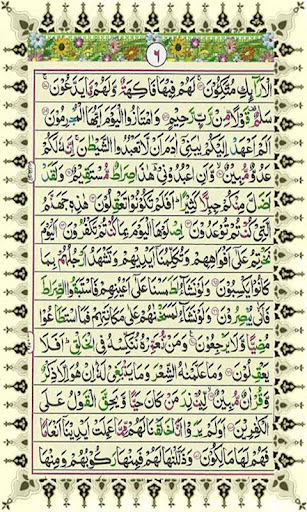 ٦
الْاَرَآئِكِ مُتَّكِـُٔوْنَ ۞ لَهُمْ فِيْهَا فَاكِهَةٌ وَّلَهُمْ مَّا يَدَّعُوْنَ ۞
سَلٰمٌ قَوْلًا مِّنْ رَّبٍّ رَّحِيْمٍ ۞ وَامْتَازُوا الْيَوْمَ اَيُّهَا الْمُجْرِمُوْنَ ۞
اَلَمْ اَعْهَدْ اِلَيْكُمْ يٰبَنِيْٓ اٰدَمَ اَنْ لَّا تَعْبُدُوا الشَّيْطٰنَ ۚ اِنَّهٗ لَكُمْ
عَدُوٌّ مُّبِيْنٌ ۞ وَّاَنِ اعْبُدُوْنِيْ ؕ هٰذَا صِرَاطٌ مُّسْتَقِيْمٌ ۞ وَلَقَدْ
اَضَلَّ مِنْكُمْ جِبِلًّا كَثِيْرًا ؕ اَفَلَمْ تَكُوْنُوْا تَعْقِلُوْنَ ۞ هٰذِهٖ جَهَنَّمُ
الَّتِيْ كُنْتُمْ تُوْعَدُوْنَ ۞ اِصْلَوْهَا الْيَوْمَ بِمَا كُنْتُمْ تَكْفُرُوْنَ ۞ اَلْيَوْمَ
نَخْتِمُ عَلٰٓى اَفْوَاهِهِمْ وَتُكَلِّمُنَآ اَيْدِيْهِمْ وَتَشْهَدُ اَرْجُلُهُمْ بِمَا
كَانُوْا يَكْسِبُوْنَ ۞ وَلَوْ نَشَآءُ لَطَمَسْنَا عَلٰٓى اَعْيُنِهِمْ فَاسْتَبَقُوا الصِّرَاطَ
فَاَنّٰى يُبْصِرُوْنَ ۞ وَلَوْ نَشَآءُ لَمَسَخْنٰهُمْ عَلٰى مَكَانَتِهِمْ فَمَا اسْتَطَاعُوْا
مُضِيًّا وَّلَا يَرْجِعُوْنَ ۞ وَمَنْ نُّعَمِّرْهُ نُنَكِّسْهُ فِي الْخَلْقِ ؕ اَفَلَا
يَعْقِلُوْنَ ۞ وَمَا عَلَّمْنٰهُ الشِّعْرَ وَمَا يَنْۢبَغِيْ لَهٗ ؕ اِنْ هُوَ اِلَّا ذِكْرٌ
وَّقُرْاٰنٌ مُّبِيْنٌ ۞ لِّيُنْذِرَ مَنْ كَانَ حَيًّا وَّيَحِقَّ الْقَوْلُ عَلَى
الْكٰفِرِيْنَ ۞ اَوَلَمْ يَرَوْا اَنَّا خَلَقْنَا لَهُمْ مِّمَّا عَمِلَتْ اَيْدِيْنَآ اَنْعَامًا
فَهُمْ لَهَا مٰلِكُوْنَ ۞ وَذَلَّلْنٰهَا لَهُمْ فَمِنْهَا رَكُوْبُهُمْ وَمِنْهَا